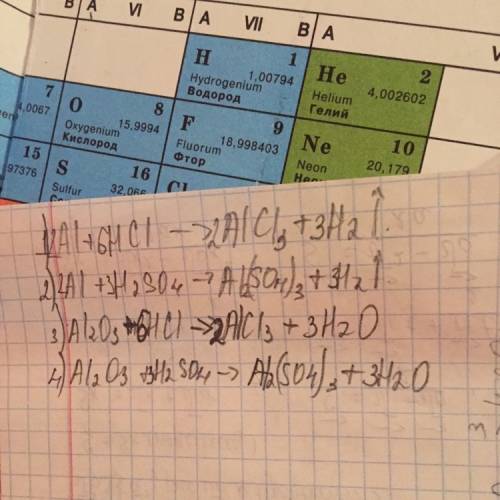 В A VI В A VII В A V
Н 1
Hydrogenium 1,00794
Водород
He 2
Helium 4,002602
Гелий
7
4,0067
O 8
Oxygenium 15,9994
Кислород
F 9
Fluorum 18,998403
Фтор
Ne 10
Neon 20,179
15
97376
S 16
Sulfur 32,066
Cl
1) 2Al + 6HCl → 2AlCl3 + 3H2↑.
2) 2Al + 3H2SO4 → Al2(SO4)3 + 3H2↑
3) Al2O3 + 6HCl → 2AlCl3 + 3H2O
4) Al2O3 + 3H2SO4 → Al2(SO4)3 + 3H2O